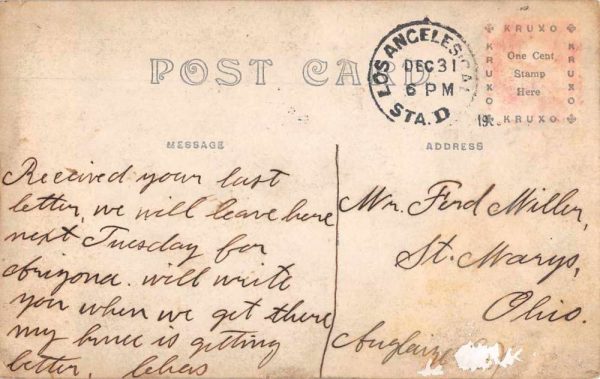 POST CARD
LOS ANGELES, CAL.
DEC 31
6 PM
STA. D
19
KRUXO
KRUXO
KRUXO
KRUXO
One Cent
Stamp
Here
MESSAGE
Received your last
letter, we will leave here
next Tuesday for
Arizona. will write
you when we get there
my knee is getting
better. Chas
ADDRESS
Mr. Ferd Miller,
St. Marys,
Ohio.
Auglaize